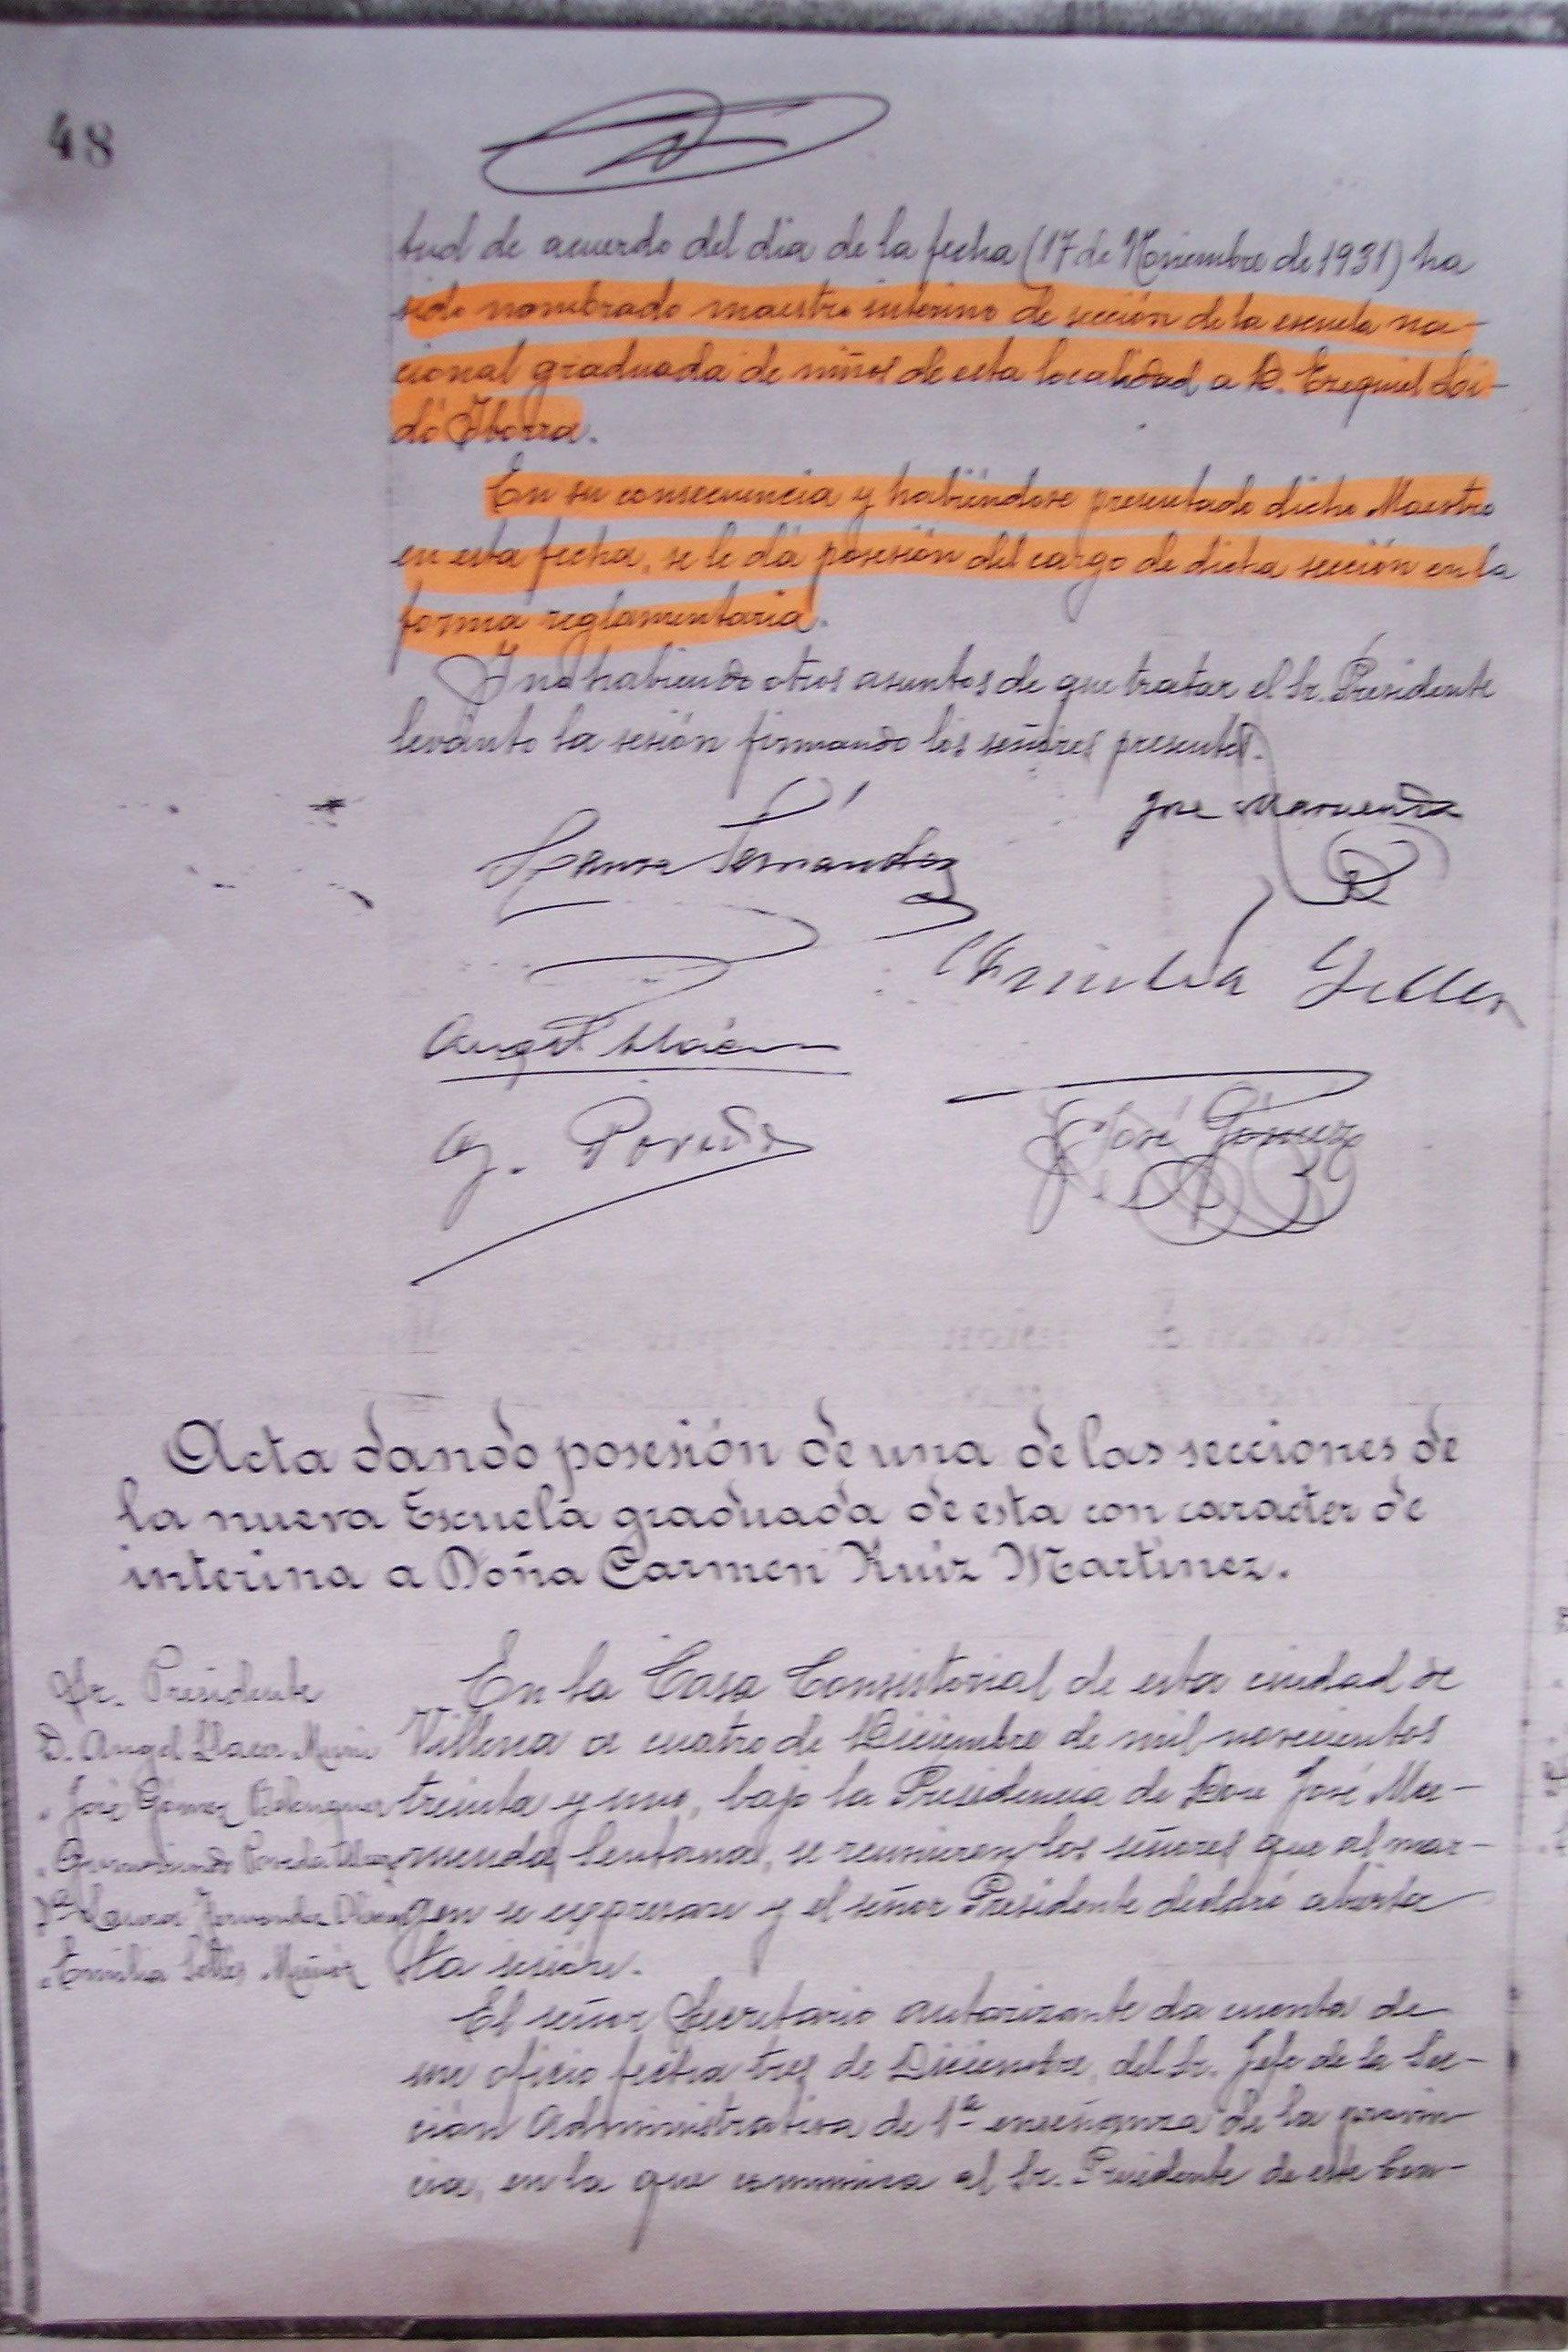 48
tud de acuerdo del dia de la fecha (17 de Noviembre de 1931) ha
sido nombrado maestro interino de sección de la escuela na-
cional graduada de niños de esta localidad a D. Ezequiel Loi-
dó Iborra.
En su consecuencia y habiéndose presentado dicho Maestro
en esta fecha, se le dá posesión del cargo de dicha sección en la
forma reglamentaria.
Y no habiendo otros asuntos de que tratar el Sr. Presidente
levantó la sesión firmando los señores presentes.
Jose Maruenda
Laura Fernandez
Emilia
Angel Llácer
G. Poveda
José Gómez
Acta dando posesión de una de las secciones de
la nueva Escuela graduada de esta con caracter de
interina a Doña Carmen Ruiz Martinez.
Sr. Presidente
D. Angel Llacer
" José Gómez Belenguer
" Poveda
Dª Laura Fernandez
" Emilia
En la Casa Consistorial de esta ciudad de
Villena a cuatro de Diciembre de mil novecientos
treinta y uno, bajo la Presidencia de Don José Ma-
ruenda Sentana, se reunieron los señores que al mar-
gen se expresan y el señor Presidente declaró abierta
la sesión.
El señor Secretario autorizante da cuenta de
un oficio fecha tres de Diciembre, del Sr. Jefe de la Sec-
ción Administrativa de 1ª enseñanza de la provin-
cia, en la que comunica al Sr. Presidente de este Con-